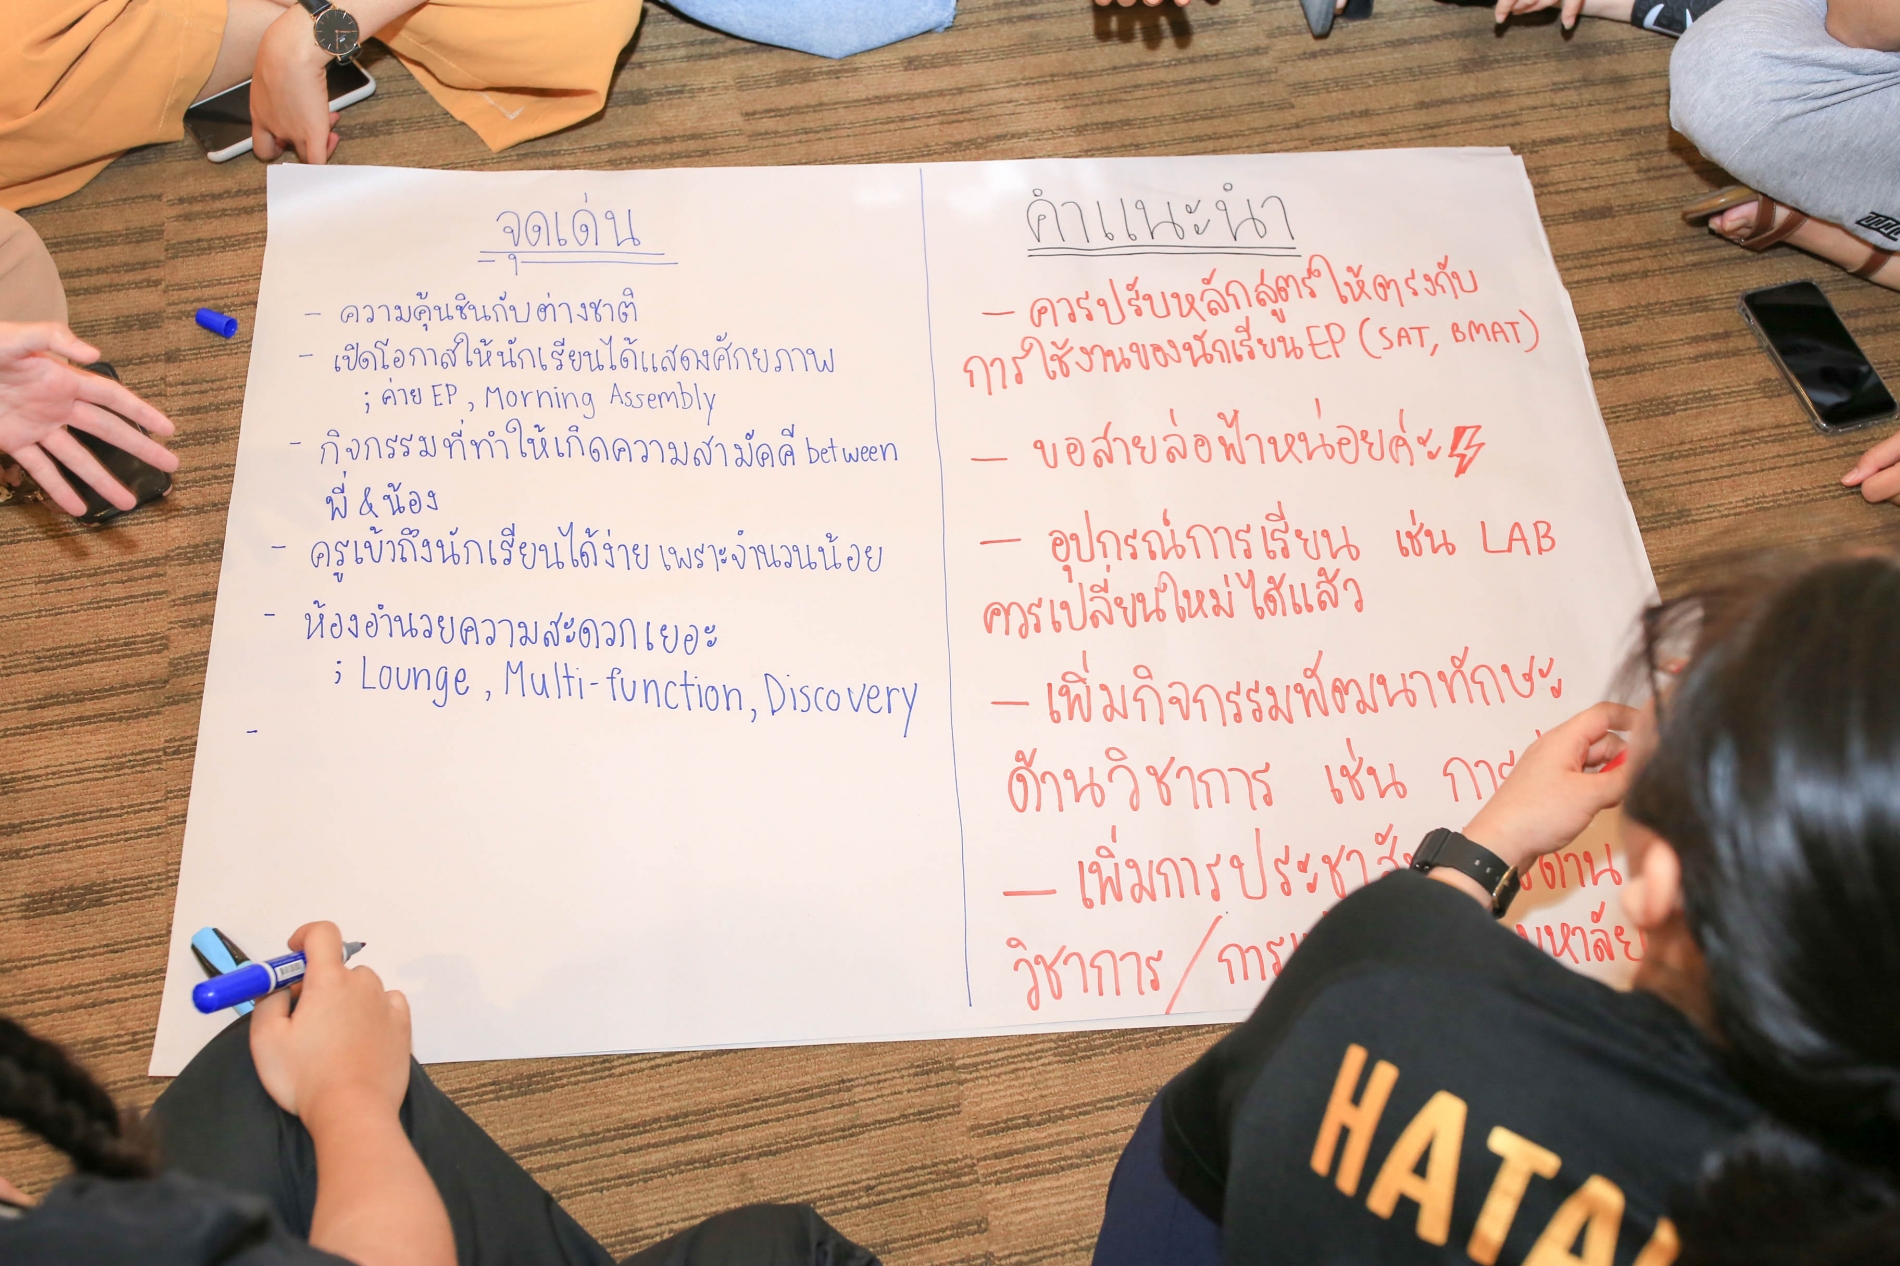 จุดเด่น
- ความคุ้นชินกับต่างชาติ
- เปิดโอกาสให้นักเรียนได้แสดงศักยภาพ
; ค่าย EP, Morning Assembly
- กิจกรรมที่ทำให้เกิดความสามัคคี between
พี่ & น้อง
- ครูเข้าถึงนักเรียนได้ง่าย เพราะจำนวนน้อย
- ห้องอำนวยความสะดวกเยอะ
; Lounge, Multi-function, Discovery
-
คำแนะนำ
- ควรปรับหลักสูตรให้ตรงกับ
การใช้งานของนักเรียน EP (SAT, BMAT)
- ขอสายล่อฟ้าหน่อยค่ะ
- อุปกรณ์การเรียน เช่น LAB
ควรเปลี่ยนใหม่ได้แล้ว
- เพิ่มกิจกรรมพัฒนาทักษะ
ด้านวิชาการ เช่น
- เพิ่มการประชาสั ด้าน
วิชาการ /
HATA